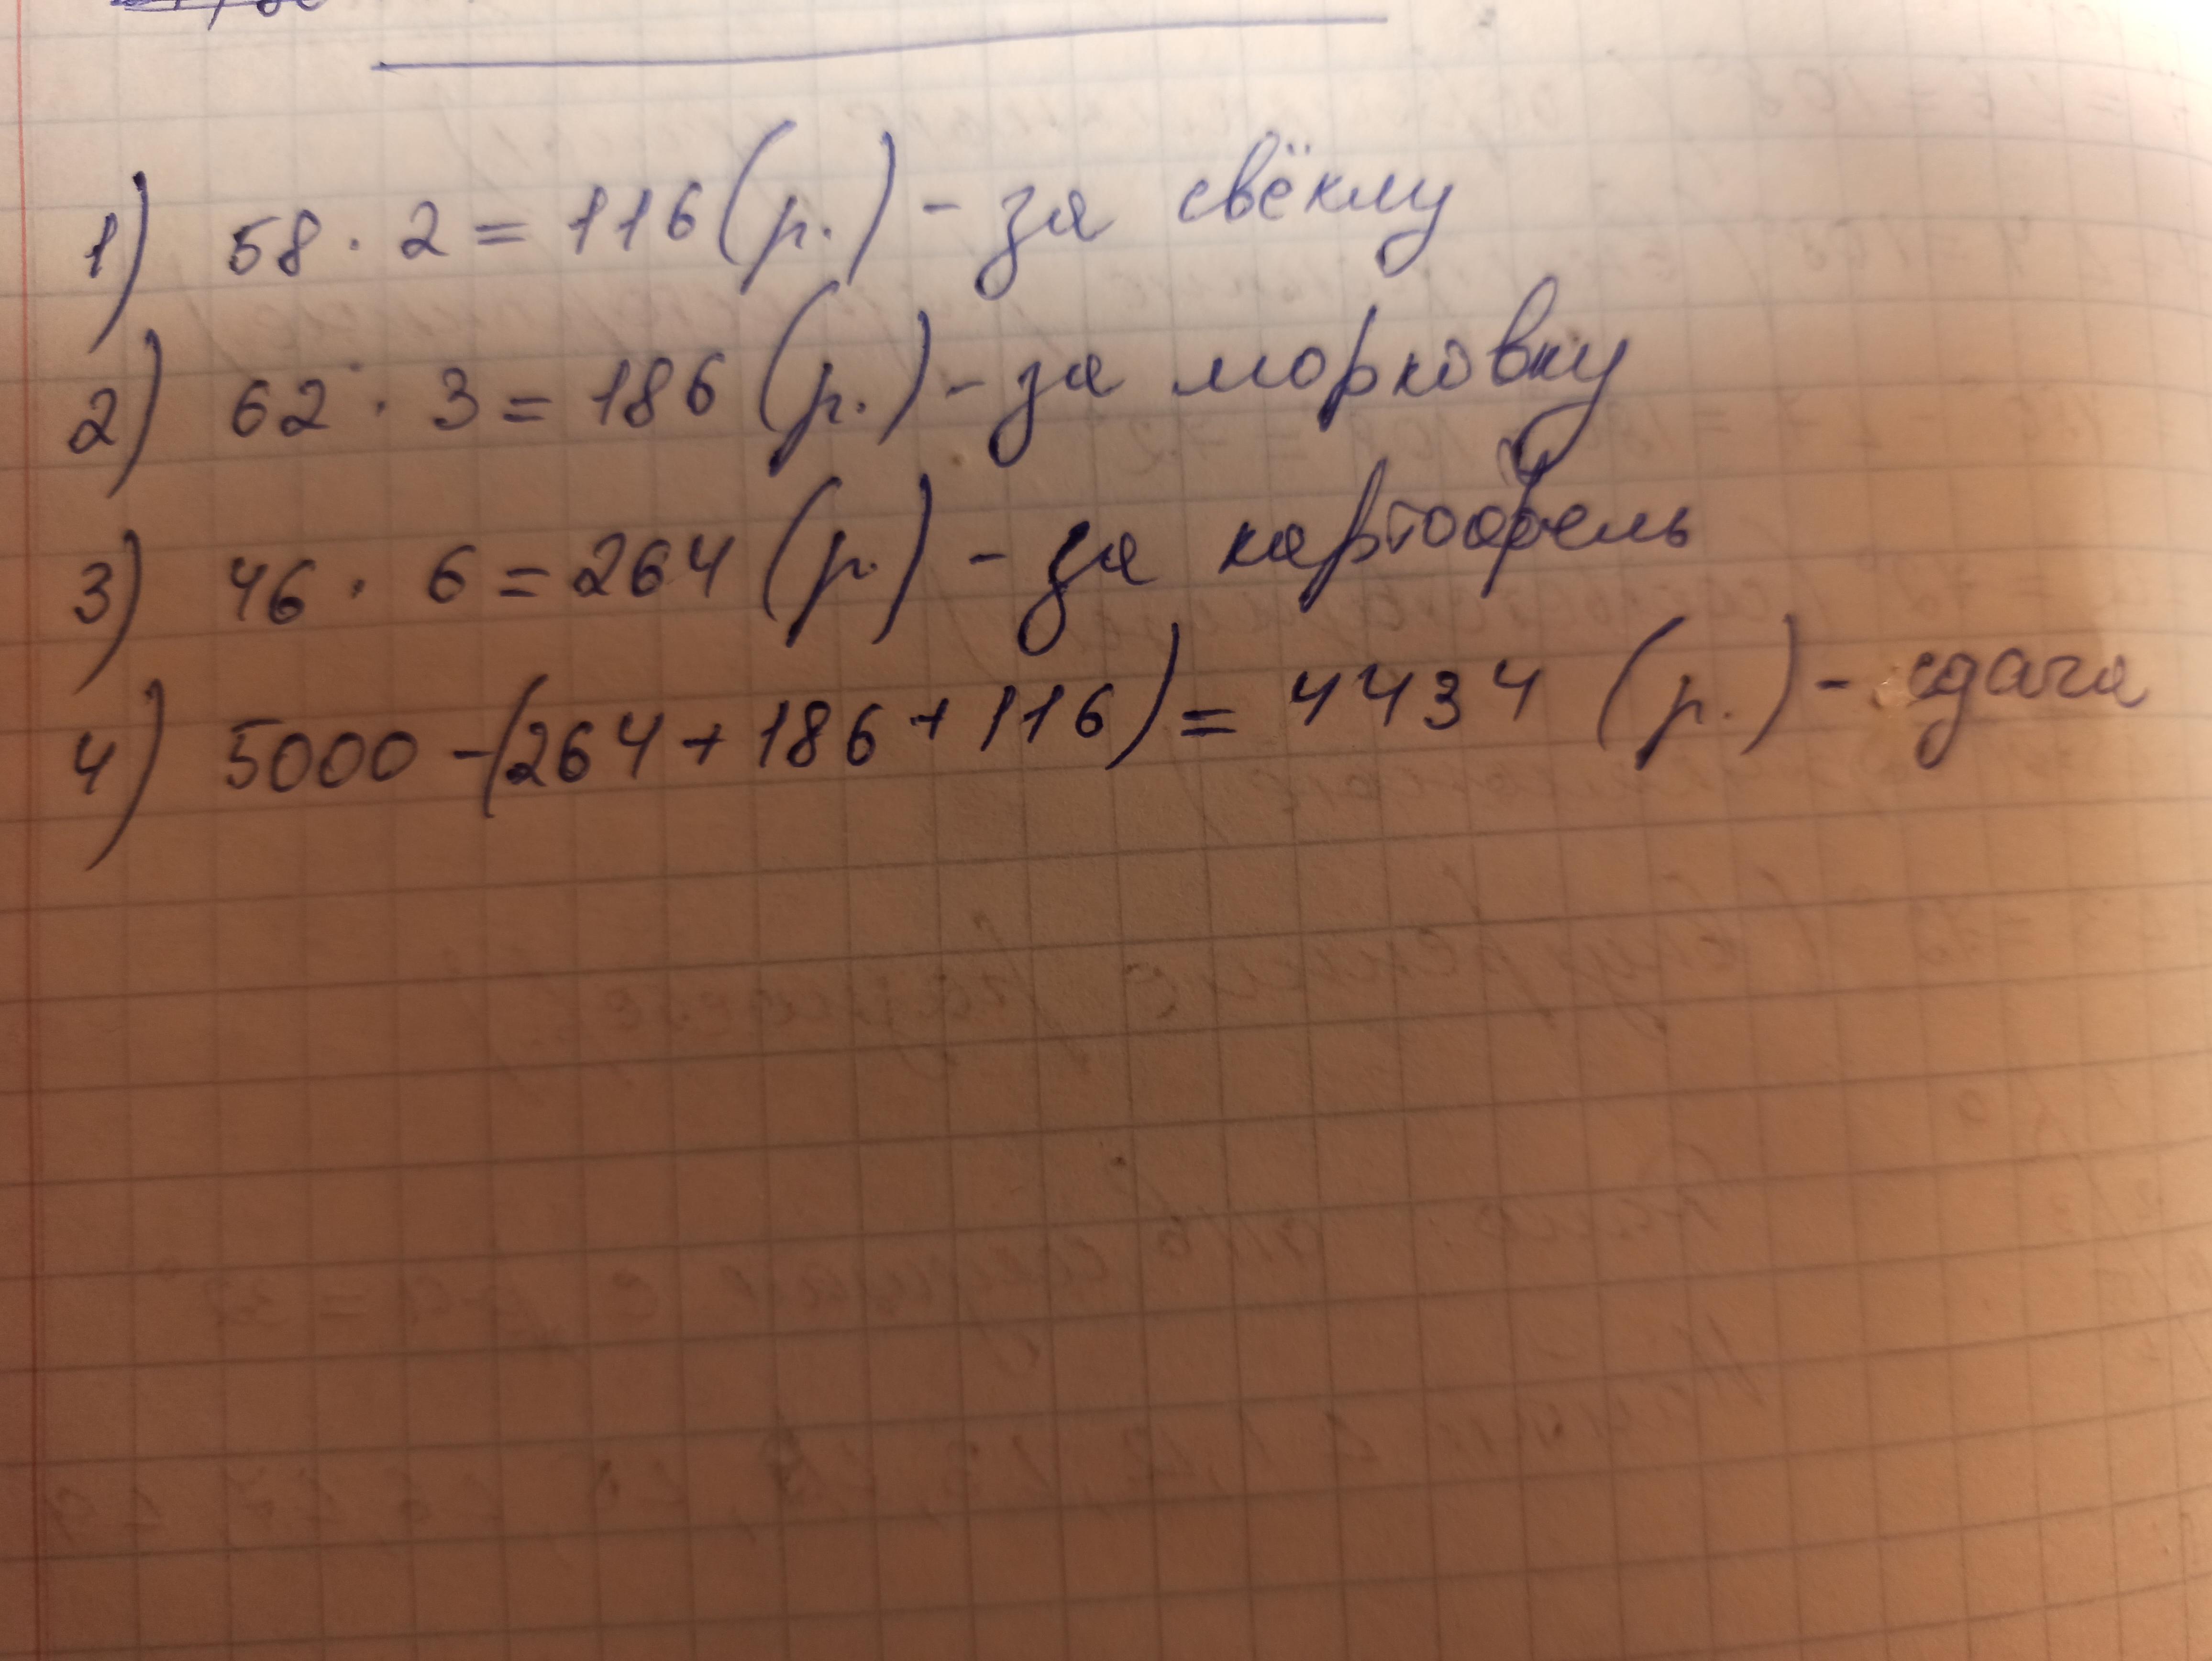 1) 58 · 2 = 116 (р.) - за свёклу
2) 62 · 3 = 186 (р.) - за морковку
3) 46 · 6 = 264 (р.) - за картофель
4) 5000 - (264 + 186 + 116) = 4434 (р.) - сдача